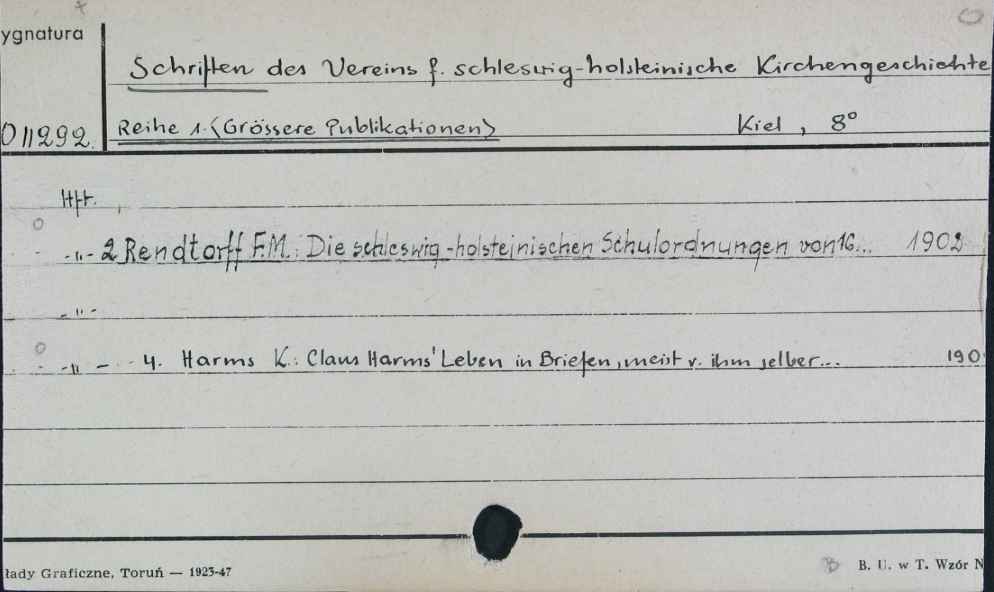 ygnatura
Schriften des Vereins f. schleswig-holsteinische Kirchengeschichte
011292. Reihe 1.<Grössere Publikationen> Kiel, 8°
Hft.
-"- 2 Rendtorff F.M.: Die schleswig-holsteinischen Schulordnungen von 16... 1902
-"-
-"- - 4. Harms K.: Claus Harms' Leben in Briefen, meist v. ihm selber... 190
łady Graficzne, Toruń — 1923-47 B. U. w T. Wzór N